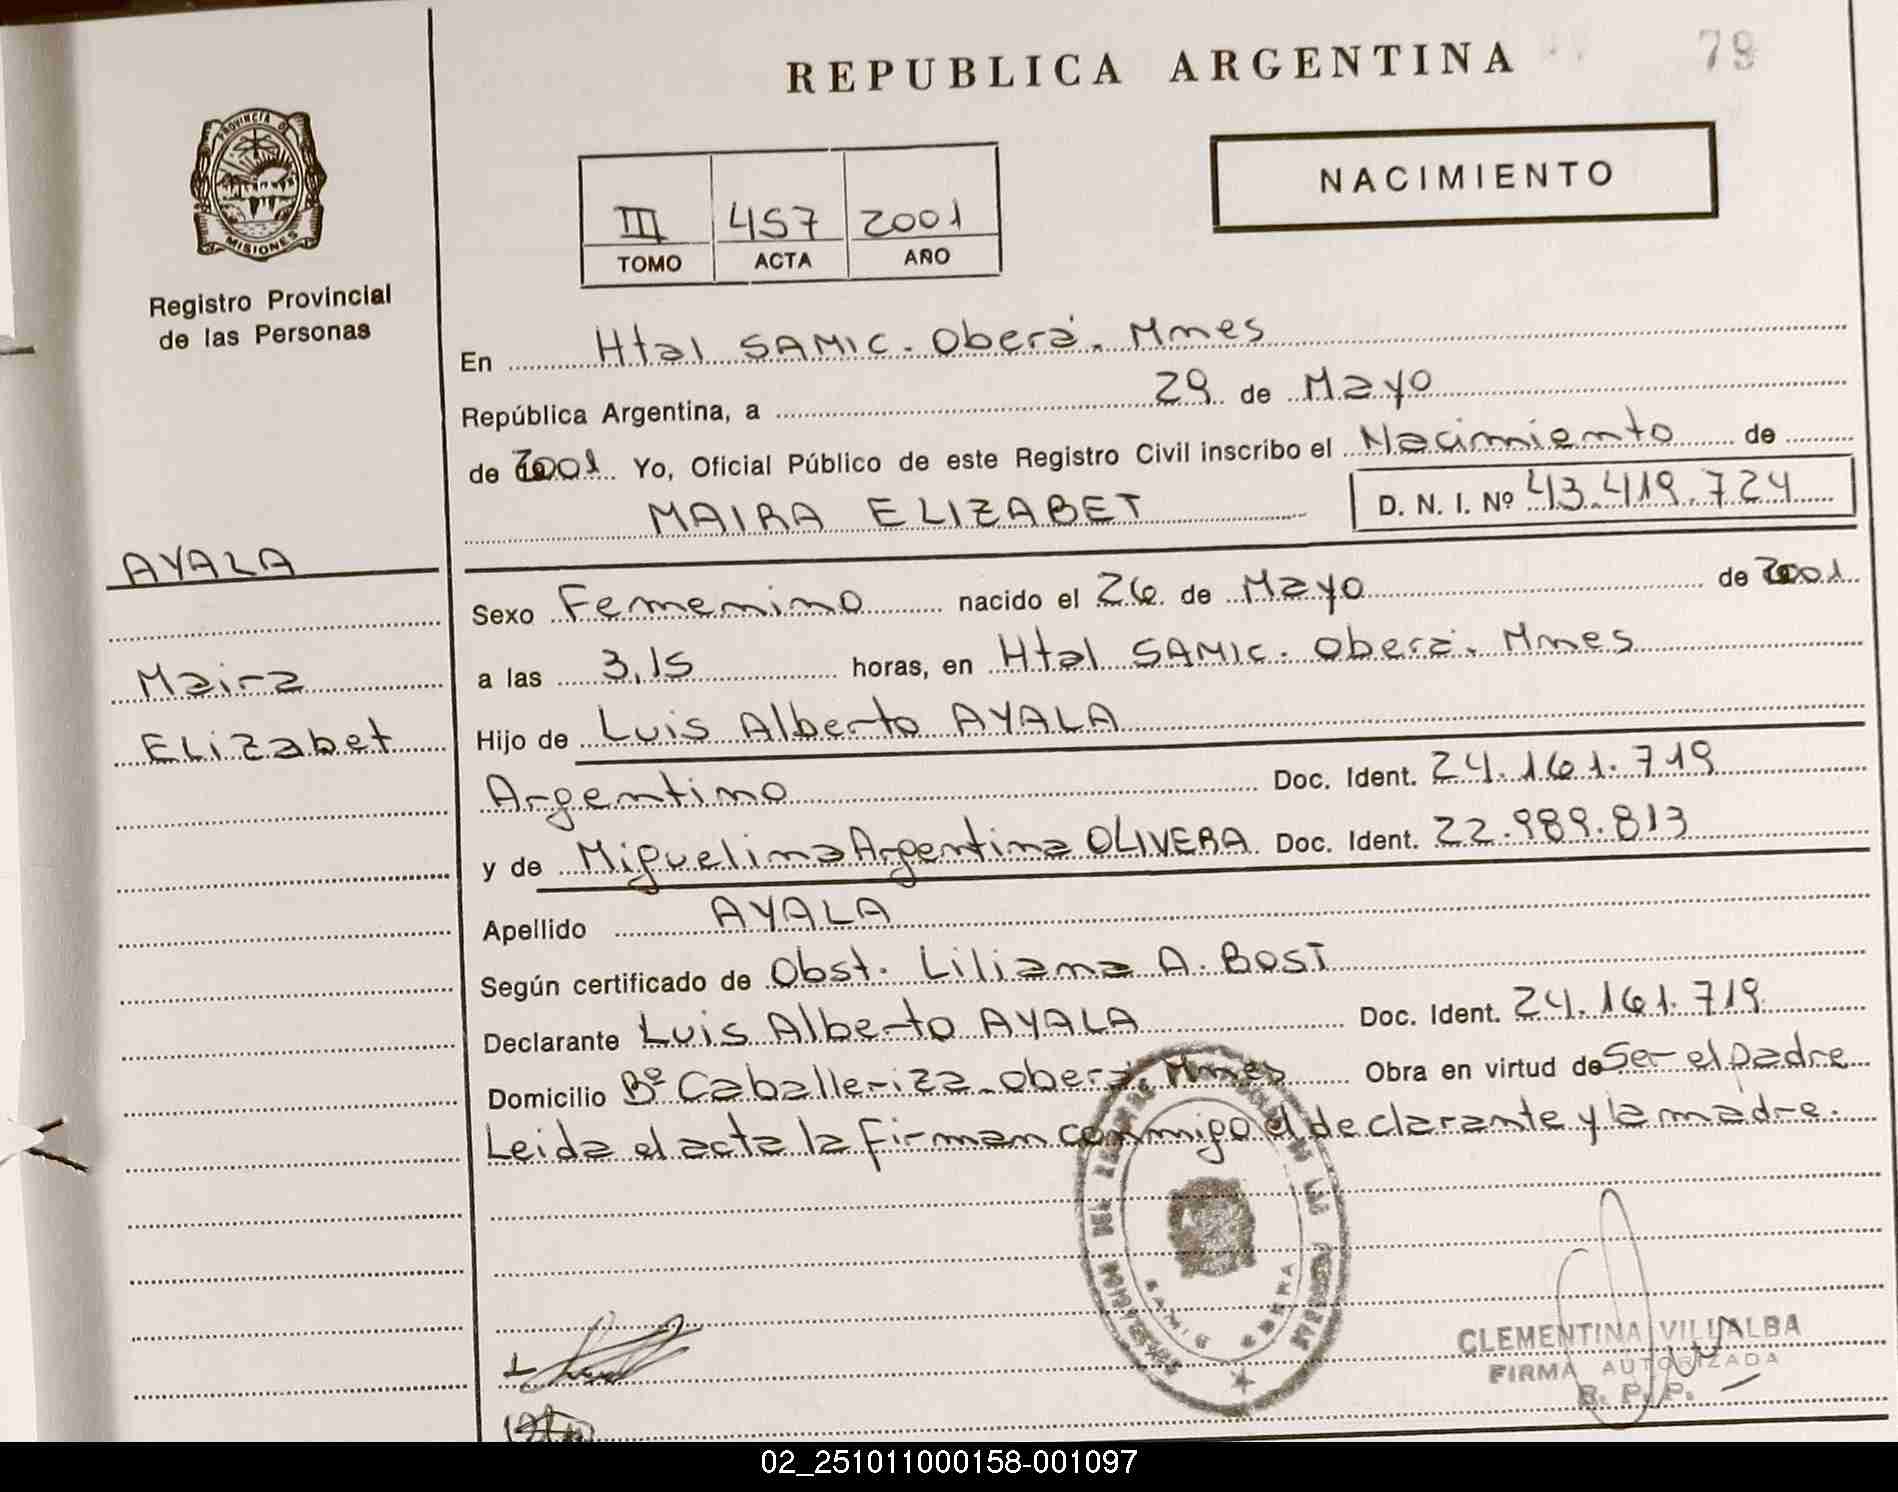 REPUBLICA ARGENTINA
79
PROVINCIA DE
MISIONES
Registro Provincial
de las Personas
NACIMIENTO
III 457 2001
TOMO ACTA AÑO
En Htal SAMIC. Oberá. Mnes
República Argentina, a 29 de Mayo
de 2001 Yo, Oficial Público de este Registro Civil inscribo el Nacimiento de
MAIRA ELIZABET D. N. I. Nº 43.419.724
AYALA
Maira
Elizabet
Sexo Femenino nacido el 26 de Mayo de 2001
a las 3,15 horas, en Htal SAMIC. Oberá. Mnes
Hijo de Luis Alberto AYALA
Argentino Doc. Ident. 24.161.719
y de Miguelina Argentina OLIVERA Doc. Ident. 22.989.813
Apellido AYALA
Según certificado de Obst. Liliana A. Bosi
Declarante Luis Alberto AYALA Doc. Ident. 24.161.719
Domicilio Bº Caballeriza. Oberá. Mnes Obra en virtud de Ser el padre
Leida el acta la firman conmigo el declarante y la madre.
SAMIC OBERA
CLEMENTINA VILLALBA
FIRMA AUTORIZADA
R. P. P.
02_251011000158-001097